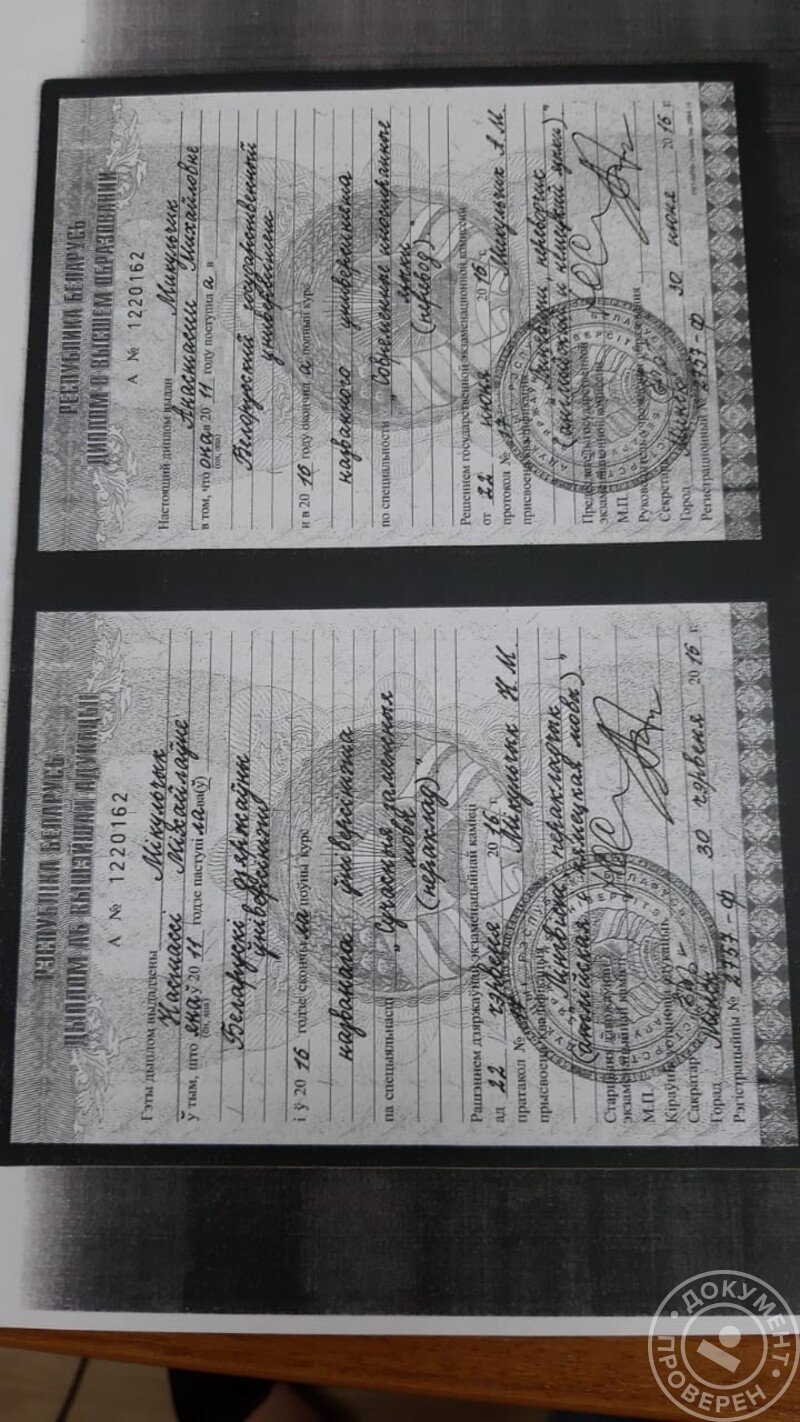 РЭСПУБЛІКА БЕЛАРУСЬ
ДЫПЛОМ АБ ВЫШЭЙШАЙ АДУКАЦЫІ
А № 1220162
Гэты дыплом выдадзены Мікульчык
Настассі Міхайлаўне
ў тым, што яна ў 2011 годзе паступіла ла у(ў)
(ён, яна)
Беларускі дзяржаўны
ўніверсітэт
і ў 2016 годзе скончыла поўны курс
названага ўніверсітэта
па спецыяльнасці "Сучасныя замежныя
мовы
(пераклад)"
Рашэннем дзяржаўнай экзаменацыйнай камісіі
ад 22 чэрвеня 2016 г.
пратакол № Мікульчык Н М
прысвоена кваліфікацыя
"Лінгвіст, перакладчык
(англійская і нямецкая мовы)"
Старшыня дзяржаўнай
экзаменацыйнай камісіі
М.П.
Кіраўнік установы адукацыі
Сакратар
Горад Мінск 30 чэрвеня 2016 г.
Рэгістрацыйны № 2757-Ф
РЕСПУБЛИКА БЕЛАРУСЬ
ДИПЛОМ О ВЫСШЕМ ОБРАЗОВАНИИ
А № 1220162
Настоящий диплом выдан Микульчик
Анастасии Михайловне
в том, что она в 2011 году поступила в
(он, она)
Белорусский государственный
университет
и в 2016 году окончила полный курс
названного университета
по специальности "Современные иностранные
языки
(перевод)"
Решением государственной экзаменационной комиссии
от 22 июня 2016 г.
протокол № Микульчик А М
присвоена квалификация
"Лингвист, переводчик
(английский и немецкий языки)"
Председатель государственной
экзаменационной комиссии
М.П.
Руководитель учреждения образования
Секретарь
Город Минск 30 июня 2016 г.
Регистрационный № 2757-Ф
ДОКУМЕНТ ПРОВЕРЕН